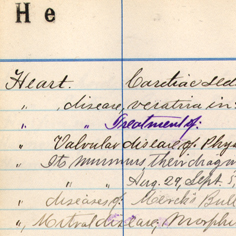 H e
Heart. Cardiac Sed
" , disease, veratria in:
" " Treatment of:
" Valvular disease of. Phys
" Its murmurs their diagn
" " Aug. 29, Sept. 5,
" diseases of Merck's Bull
" Mitral disease, Morphi